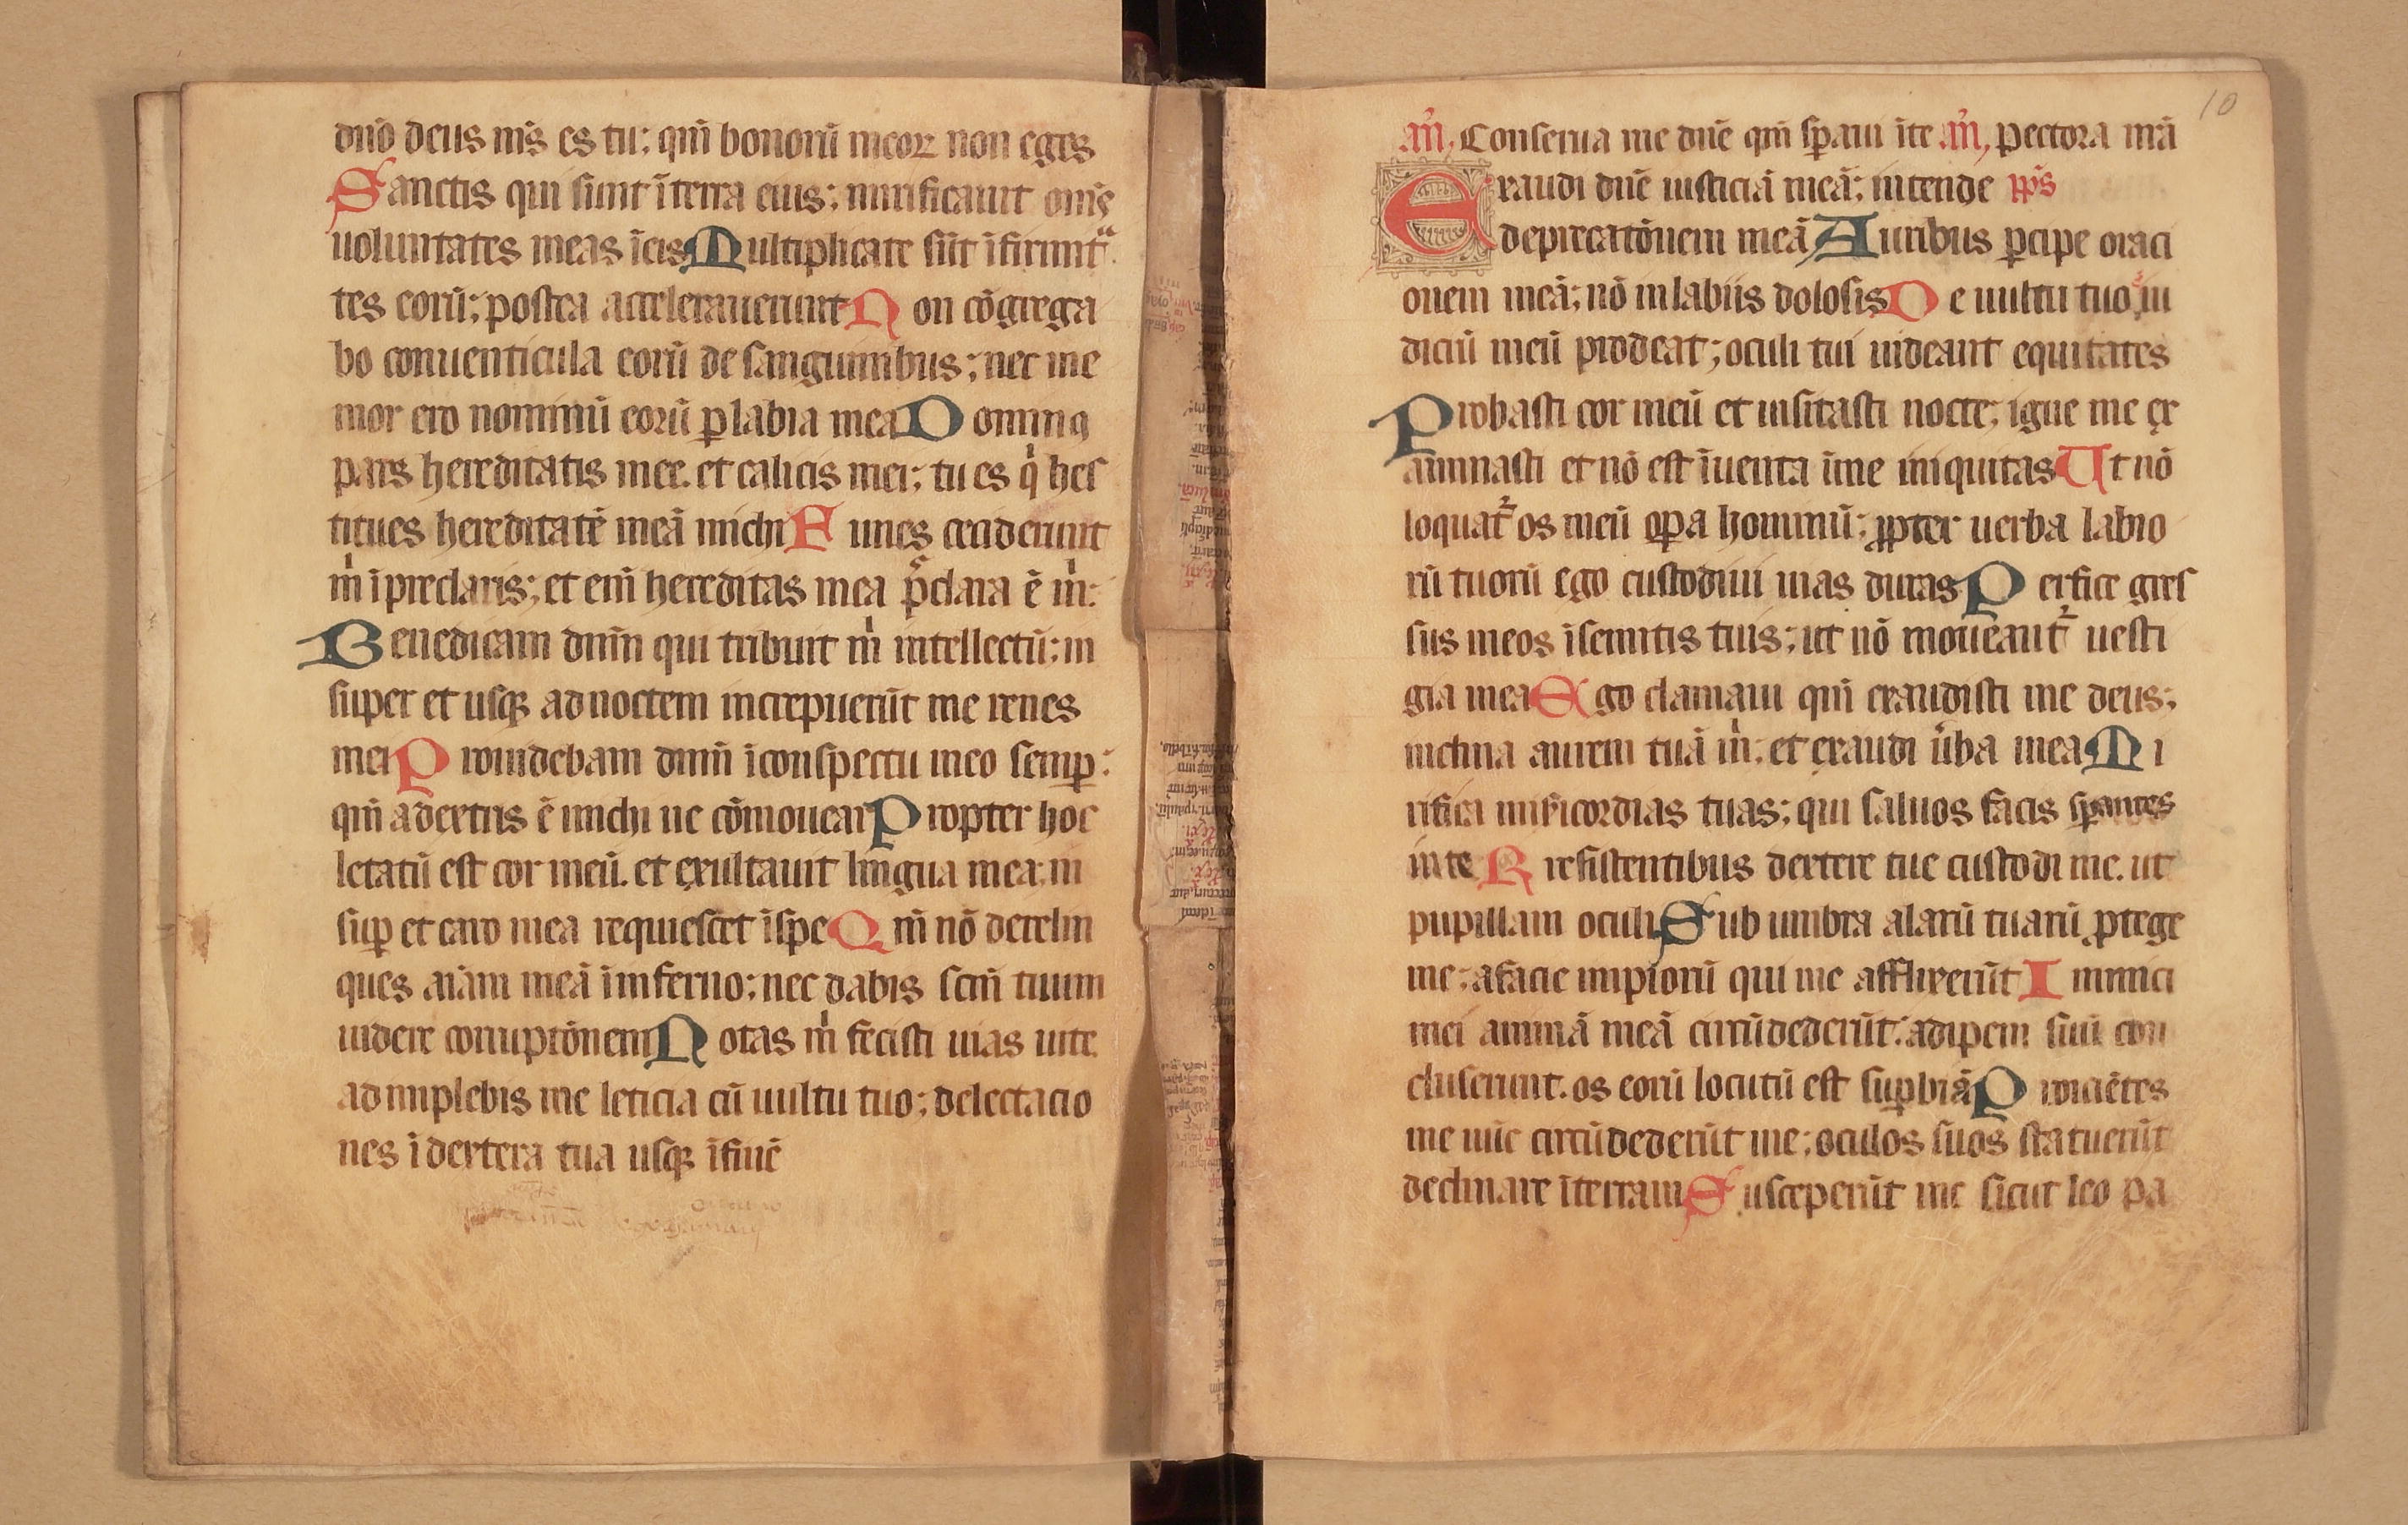 dnō deus m̄s es tu; qm̄ bonorū meoꝝ non eges
Sanctis qui sunt ī terra eius; mirificauit om̄s
uoluntates meas ī eis Multiplicate sūt īfirmita
tes eorū; postea accelerauerunt Non cōgrega
bo conuenticula eorū de sanguinibus; nec me
mor ero nominū eorū ꝑ labia mea Dominꝰ
pars hereditatis mee. et calicis mei; tu es q' res
titues hereditatē meā michi Funes ceciderunt
m' ī preclaris; et em̄ hereditas mea p̄clara ē m';
Benedicam dnm̄ qui tribuit m' intellectū; in
super et usqꝫ ad noctem increpuerūt me renes
mei Prouidebam dnm̄ ī conspectu meo semꝑ;
qm̄ a dextris ē michi ne cōmouear Propter hoc
letatū est cor meū. et exultauit lingua mea; in
suꝑ et caro mea requiescet ī spe Qm̄ nō derelin
ques aīam meā ī inferno; nec dabis scm̄ tuum
uidere corruptōnem Notas m' fecisti uias uite
ad implebis me leticia cū uultu tuo; delectacio
nes ī dextera tua usqꝫ ī finē
10
Conserua me dnē qm̄ sꝑaui ī te pectora mā
Exaudi dnē iusticiā meā; intende pp̄s
deprecatōnem meā Auribus ꝑcipe oraci
onem meā; nō in labiis dolosis De uultu tuo iu
diciū meū prodeat; oculi tui uideant equitates
Probasti cor meū et uisitasti nocte; igne me ex
aminasti et nō est īuenta ī me iniquitas Ut nō
loquat᷑ os meū oꝑa hominū; ꝓpter uerba labio
rū tuorū ego custodiui uias duras Perfice gres
sus meos ī semitis tuis; ut nō moueant᷑ uesti
gia mea Ego clamaui qm̄ exaudisti me deus;
inclina aurem tuā m'; et exaudi ūba mea Mi
rifica mīsericordias tuas; qui saluos facis sꝑantes
in te R resistentibus dextere tue custodi me. ut
pupillam oculi Sub umbra alarū tuarū ꝓtege
me; a facie impiorū qui me afflixerūt Inimici
mei animā meā circūdederūt; adipem suū con
cluserunt. os eorū locutū est suꝑbiā Proiciētes
me nūc circūdederūt me; oculos suos statuerūt
declinare ī terram Susceperūt me sicut leo pa